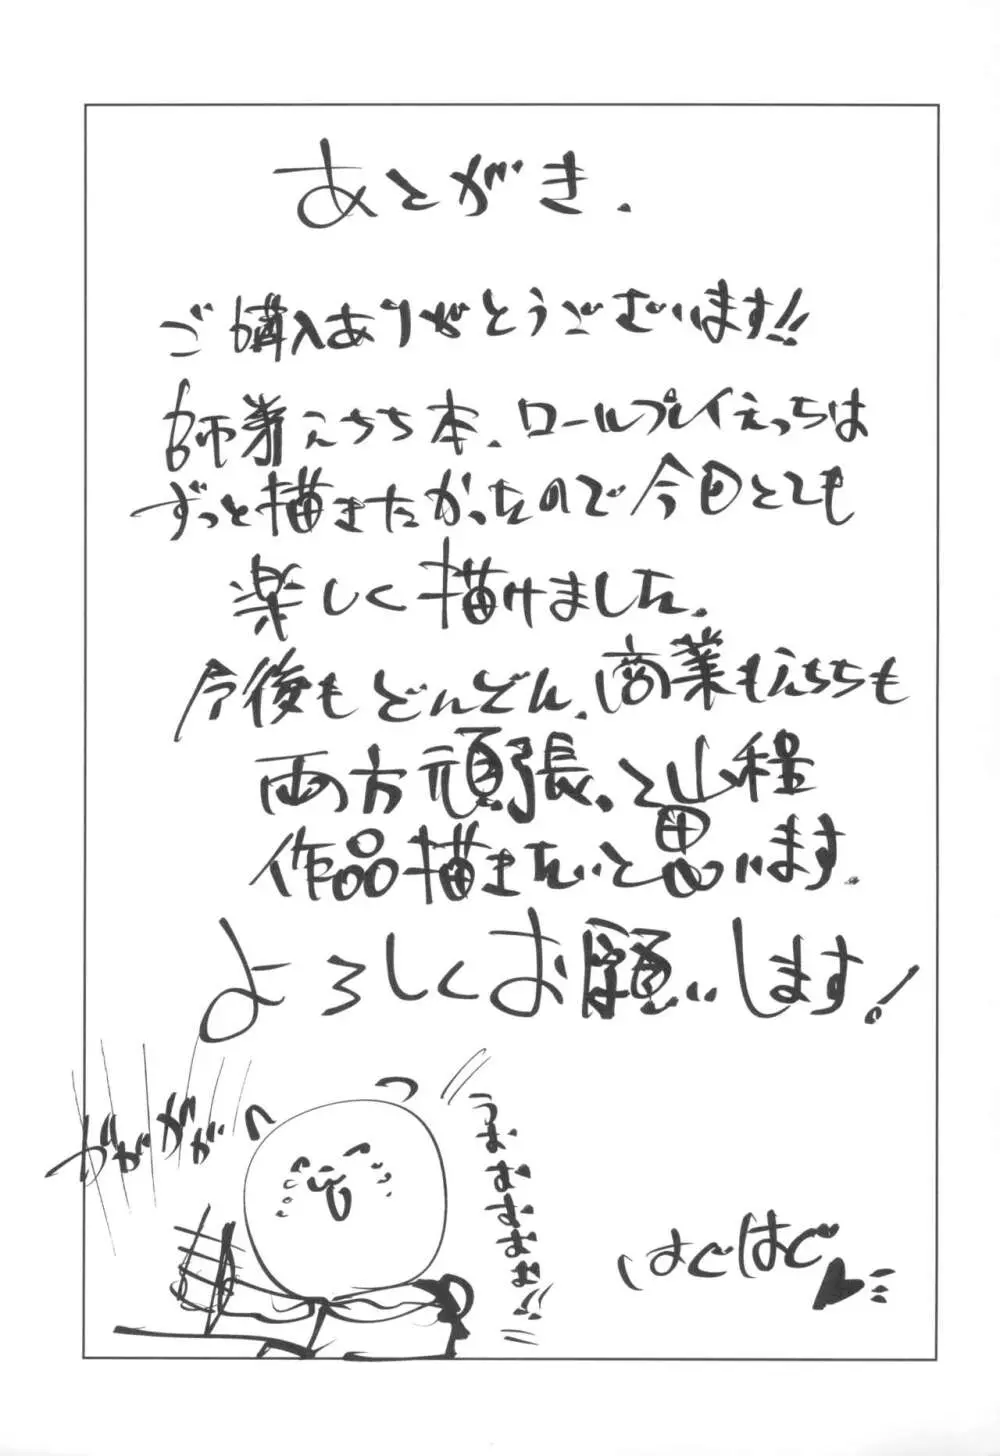 あとがき.
ご購入ありがとうございます!!
師弟えちち本、ロールプレイえっちは
ずっと描きたかったので今回とても
楽しく描けました。
今後もどんどん、商業もえちちも
両方頑張、と山程
作品描きたいと思います。
よろしくお願いします!
ががガガ
うおおおおお!!
はぐはぐ